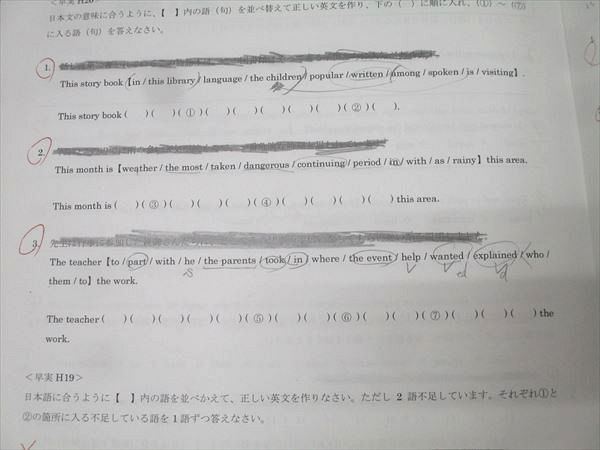 ＜早実 H20＞
日本文の意味に合うように、【 】内の語（句）を並べ替えて正しい英文を作り、下の（ ）に順に入れ、（①）～（⑦）
に入る語（句）を答えなさい。
1.
This story book【in / this library / language / the children / popular / written / among / spoken / is / visiting】.
This story book (    )(    )( ① )(    )(    )(    )(    )(    )( ② )(    ).
2.
This month is【weather / the most / taken / dangerous / continuing / period / in / with / as / rainy】this area.
This month is (    )( ③ )(    )(    )(    )( ④ )(    )(    )(    )(    ) this area.
3.
The teacher【to / part / with / he / the parents / took / in / where / the event / help / wanted / explained / who /
s ed d
them / to】the work.
The teacher (    )(    )(    )(    )(    )( ⑤ )(    )(    )( ⑥ )(    )(    )( ⑦ )(    )(    )(    ) the
work.
＜早実 H19＞
日本語に合うように【 】内の語を並べかえて、正しい英文を作りなさい。ただし 2 語不足しています。それぞれ①と
②の箇所に入る不足している語を 1 語ずつ答えなさい。